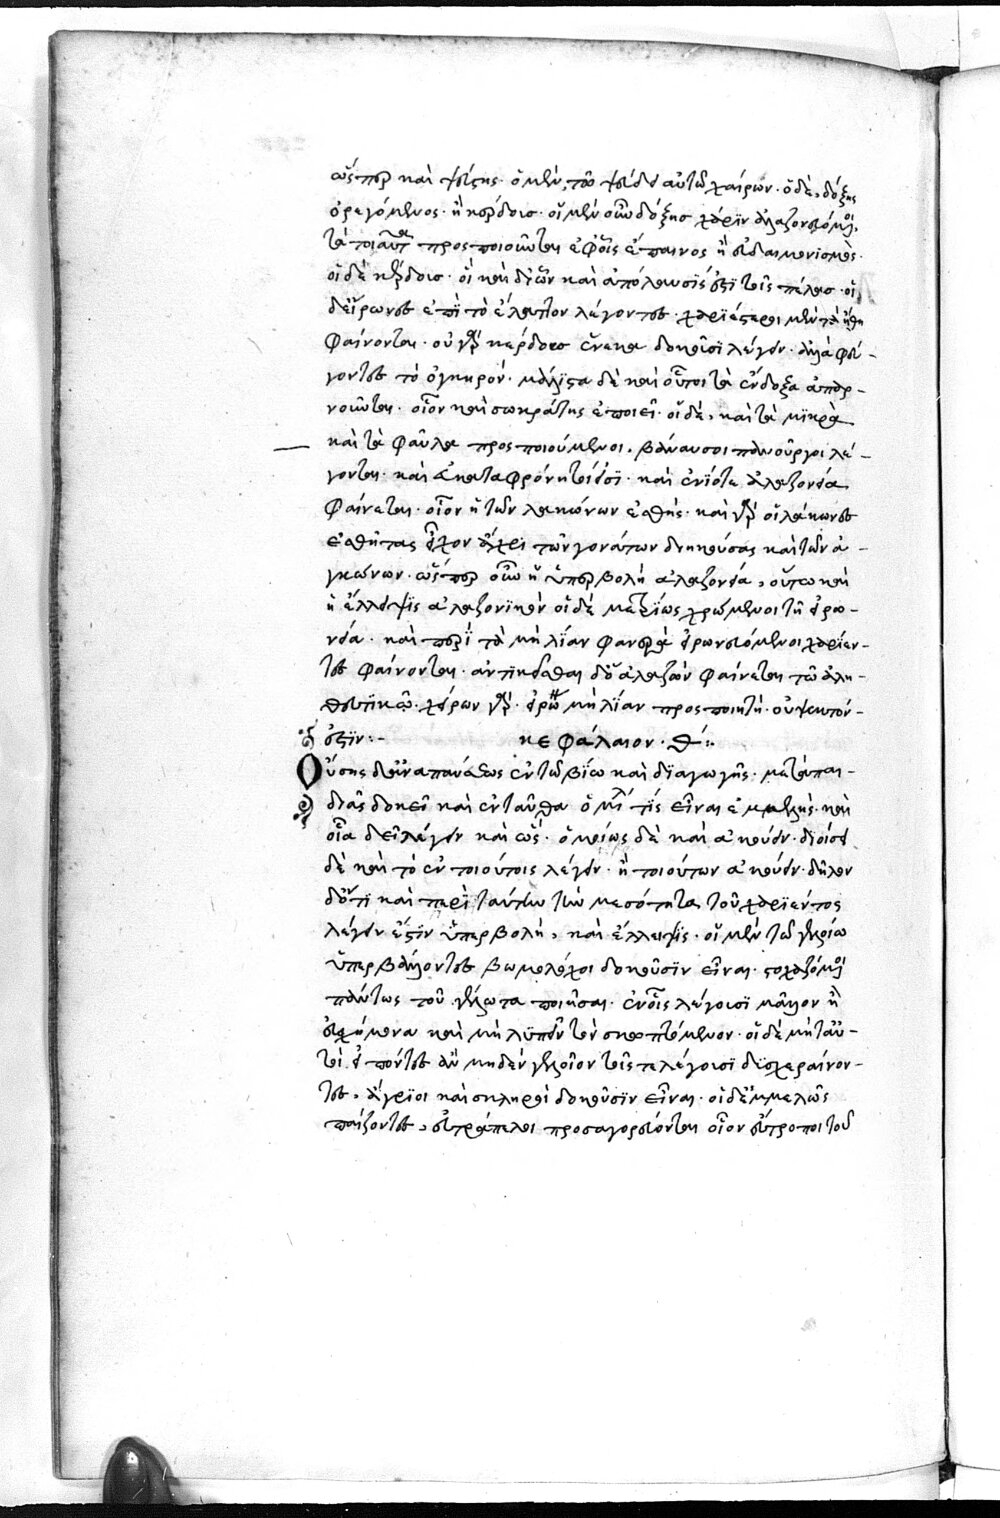 ὥσπερ καὶ ψεύστης· ὁ μὲν, τῶ ψεύδει αὐτῶ χαίρων· ὁ δὲ, δόξης
ὀρεγόμενος· ἢ κέρδους· οἱ μὲν οὖν δόξης χάριν ἀλαζονευόμενοι,
τὰ τοιαῦτα προσποιοῦνται ἐφ' οἷς ἔπαινος ἢ εὐδαιμονισμὸς·
οἱ δὲ κέρδους· ὧν καὶ ἀπόλαυσίς ἐστι τοῖς πέλας· οἱ
δ' εἴρωνες ἐπὶ τὸ ἔλαττον λέγοντες· χαριέστεροι μὲν τὰ ἤθη
φαίνονται· οὐ γὰρ κέρδους ἕνεκα δοκοῦσι λέγειν· ἀλλὰ φεύ-
γοντες τὸ ὀγκηρόν· μάλιστα δὲ καὶ οὗτοι τὰ ἔνδοξα ἀπαρ-
νοῦνται· οἷον καὶ σωκράτης ἐποίει· οἱ δὲ, καὶ τὰ μικρὰ
καὶ τὰ φαῦλα προσποιούμενοι, βάναυσοι πανοῦργοι λέ-
γονται· καὶ εὐκαταφρόνητοί εἰσι· καὶ ἐνίοτε ἀλαζονεία
φαίνεται· οἷον ἡ τῶν λακώνων ἐσθής· καὶ γὰρ οἱ λάκωνες
ἐσθῆτας εἶχον ἄχρι τῶν γονάτων διηκούσας καὶ τῶν ἀ-
γκώνων· ὥσπερ οὖν ἡ ὑπερβολὴ ἀλαζονεία, οὕτω καὶ
ἡ ἔλλειψις ἀλαζονικὸν οἱ δὲ μετρίως χρώμενοι τῆ εἰρω-
νεία· καὶ περὶ τὰ μὴ λίαν φανερὰ εἰρωνευόμενοι χαρίεν-
τες φαίνονται· ἀντικεῖσθαι δ' ὁ ἀλαζὼν φαίνεται τῶ ἀλη-
θευτικῶ· χείρων γάρ· εἴρων μὴ λίαν προσποιητὴ· οὐ ψεκτόν
ἐστιν:-
κεφάλαιον· θ´:
Οὔσης δὲ ἀναπαύσεως ἐν τῶ βίω καὶ διαγωγῆς· μετὰ παι-
διᾶς δοκεῖ καὶ ἐνταῦθα ὁμιλία τίς εἶναι ἐμμελής· καὶ
οἷα δεῖ λέγειν καὶ ὥς· ὁμοίως δὲ καὶ ἀκούειν· διοίσει
δὲ καὶ τὸ ἐν τοιούτοις λέγειν· ἢ τοιούτων ἀκούειν· δῆλον
δ' ὅτι καὶ περὶ ταύτην τὴν μεσότητα τοῦ χαριέντος
λέγειν ἐστὶν ὑπερβολὴ, καὶ ἔλλειψις· οἱ μὲν τῶ γελοίω
ὑπερβάλλοντες βωμολόχοι δοκοῦσιν εἶναι· στοχαζόμενοι
πάντως τοῦ γέλωτα ποιῆσαι· ἐν οἷς λέγουσι μᾶλλον ἢ
εὐσχήμονα καὶ μὴ λυπεῖν τὸν σκωπτόμενον· οἱ δὲ μήτ' αὐ-
τοὶ εἰπόντες ἂν μηδὲν γελοῖον τοῖς τε λέγουσι δυσχεραίνον-
τες, ἄγριοι καὶ σκληροὶ δοκοῦσιν εἶναι· οἱ δ' ἐμμελῶς
παίζοντες, εὐτράπελοι προσαγορεύονται οἷον εὔτροποι τοῦ